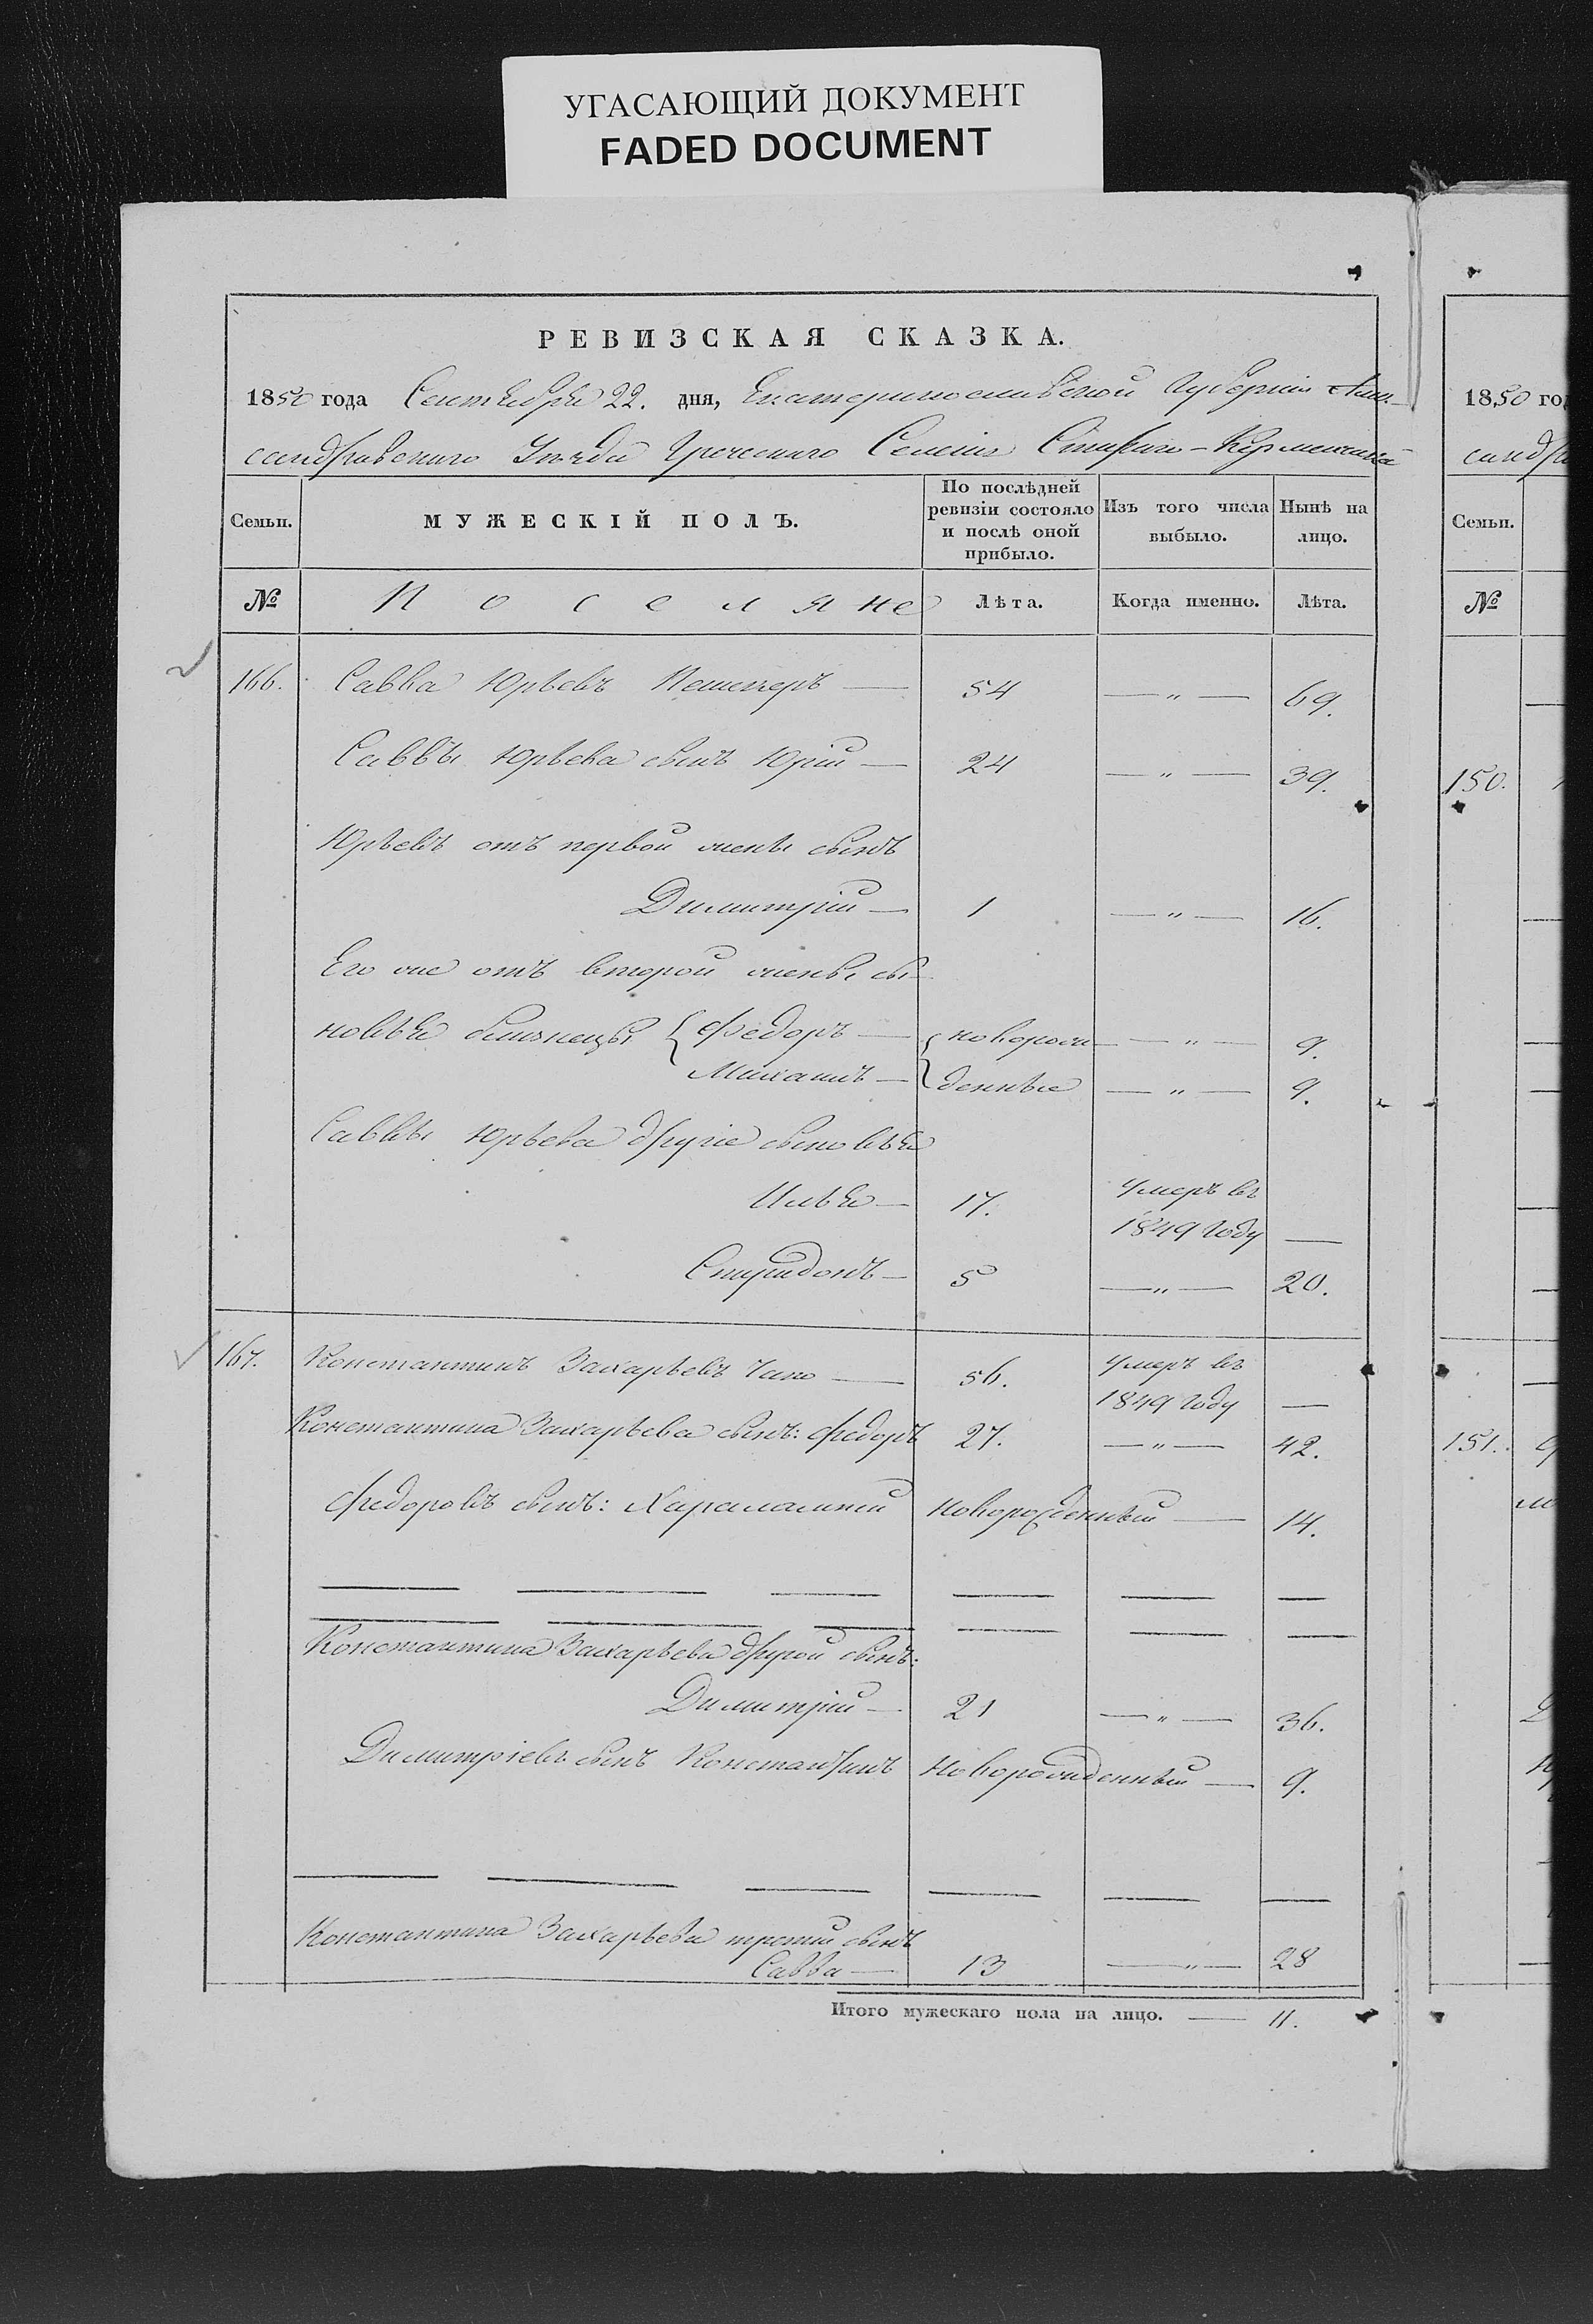 УГАСАЮЩИЙ ДОКУМЕНТ
FADED DOCUMENT
РЕВИЗСКАЯ СКАЗКА.
1850 года Сентября 22. дня, Екатеринославской Губернии Алек-
сандровскаго Уезда Греческаго Селенія Стараго-Керменчика
Семьи.
МУЖЕСКІЙ ПОЛЪ.
По послѣдней ревизіи состояло и послѣ оной прибыло.
Изъ того числа выбыло.
Нынѣ на лицо.
№ Поселяне Лѣта. Когда именно. Лѣта.
166. Савва Юрьевъ — 54 — " — 69.
Саввы Юрьева сынъ Юрій — 24 — " — 39.
Юрьевъ отъ первой жены сынъ
Димитрій — 1 — " — 16.
Его же отъ второй жены сы-
новья близнецы { Федоръ — { новорож- — " — 9.
Михаилъ — { денные — " — 9.
Саввы Юрьева другіе сыновья
Илья — 17. Умеръ въ
1849 году —
Спиридонъ — 5 — " — 20.
167. Константинъ Захарьевъ Чако — 56. Умеръ въ
1849 году —
Константина Захарьева сынъ: Федоръ 27. — " — 42.
Федоровъ сынъ: Харалампій новорожденный — 14.
Константина Захарьева другой сынъ:
Димитрій — 21 — " — 36.
Димитріевъ сынъ Константинъ новорожденный — 9.
Константина Захарьева третій сынъ
Савва — 13 — " — 28
Итого мужескаго пола на лицо. — 11.
1850 го
санд
Семьи.
№
150.
151.